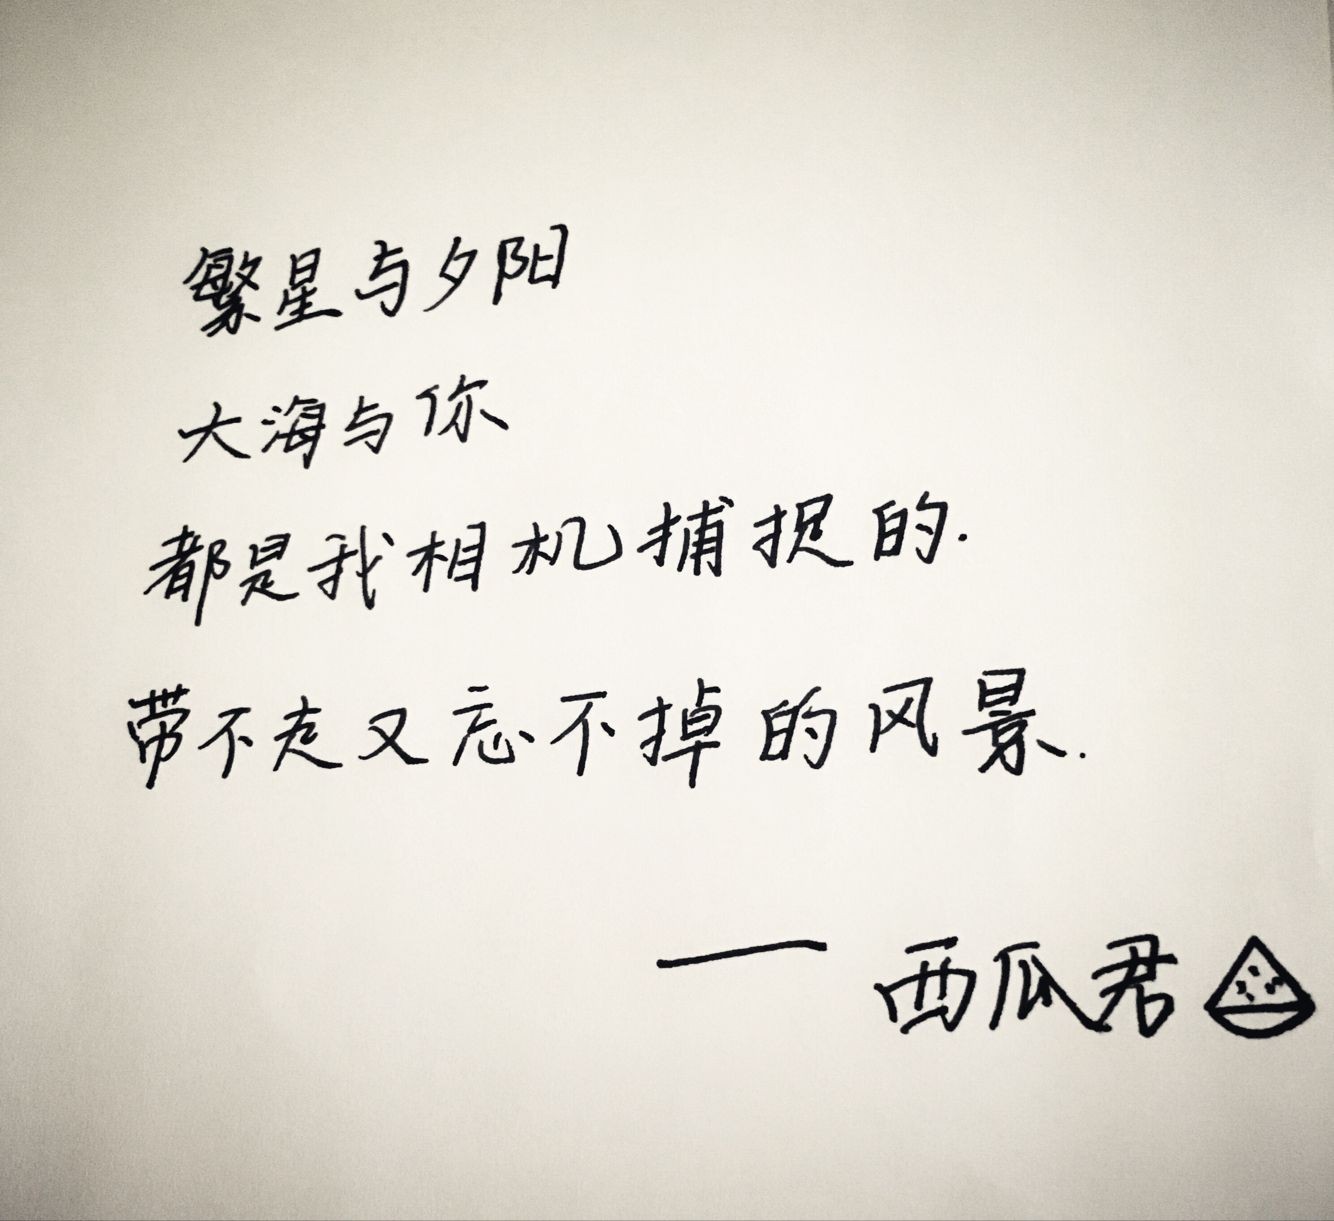 繁星与夕阳
大海与你
都是我相机捕捉的.
带不走又忘不掉的风景.
—— 西瓜君